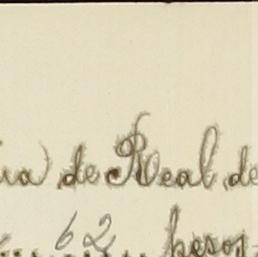 de Real de
62 pesos